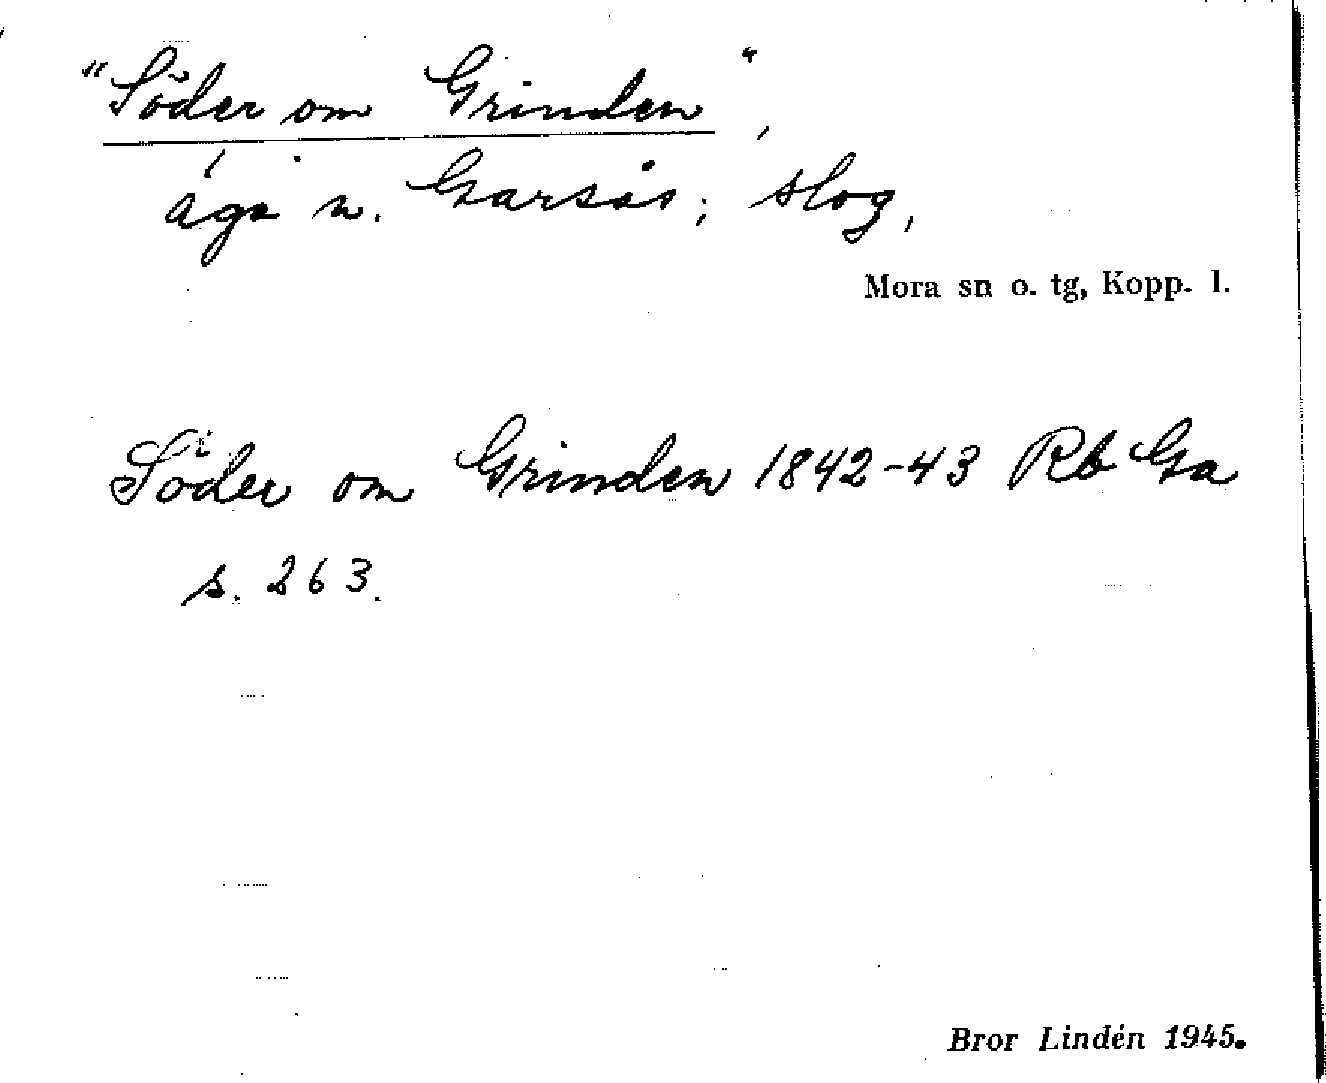 "Söder om Grinden",
äga n. Garsås; slog,
Mora sn o. tg, Kopp. l.
Söder om Grinden 1842-43 Rb Ga
s. 263.
Bror Lindén 1945.